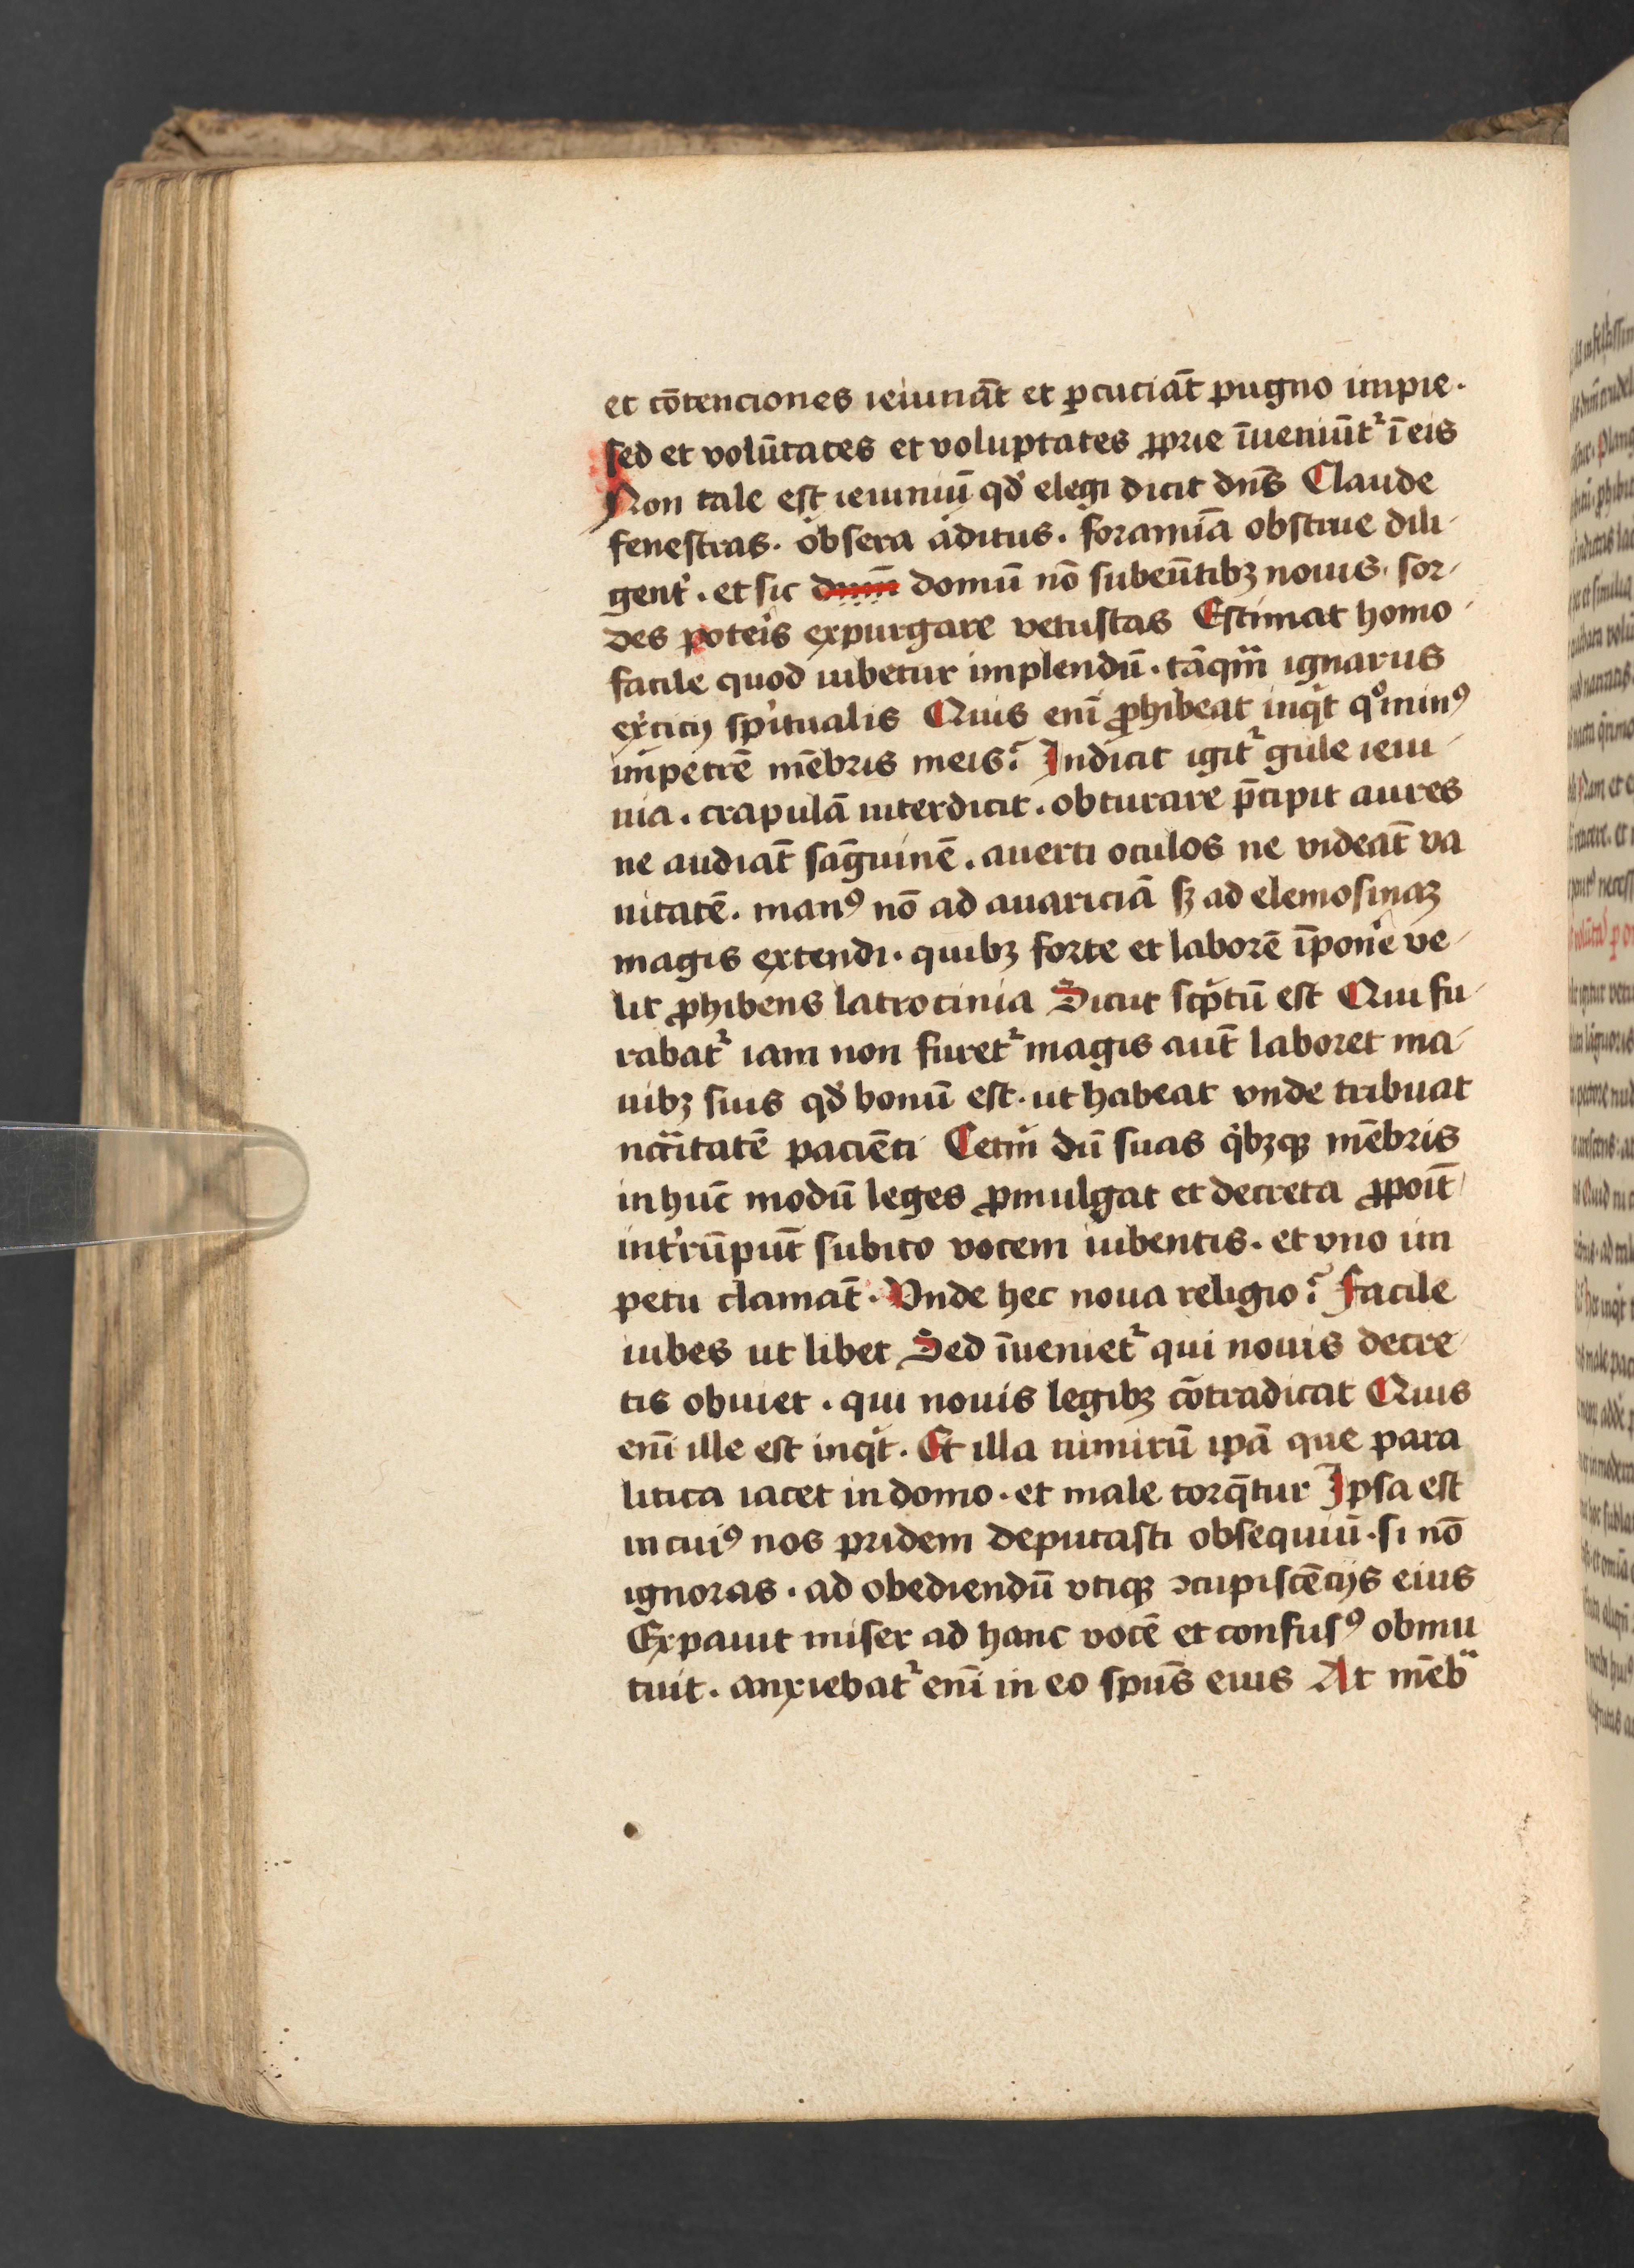 et cōtenciones ieiunāt et ꝑcuciāt pugno impie.
sed et volūtates et voluptates ꝓprie īueniūtᷣ ī eis
Non tale est ieiuniū qd̓ elegi dicit dn̄s Claude
fenestras. obsera aditus. foramīa obstrue dili-
gent̓. et sic domū nō subeūtibꝫ nouis. sor-
des poteis expurgare vetustas Estimat homo
facile quod iubetur implendū. tāqm̄ ignarus
exc̓icij sp̓itualis Quis enī ꝓhibeat inqͥt qͦminꝰ
impetrē mēbris meis? Indicit igitᷣ gule ieiu-
nia. crapulā interdicit. obturare p̄cipit aures
ne audiāt sāguinē. auerti oculos ne videāt va
nitatē. manꝰ nō ad auariciā sꝫ ad elemosinaꝫ
magis extendi. quibꝫ forte et laborē īpon̓e ve-
lit ꝓhibens latrocinia Sicut scͥptū est Qui fu-
rabatᷣ iam non furetᷣ magis aut̄ laboret ma-
nibꝫ suis qd̓ bonū est. ut habeat vnde tribuat
nc̄citatē pacienti Cetm̓ dū suas qͥbꝫqꝫ mēbris
in huc̄ modū leges ꝓmulgat et decreta ꝓpoīt
int̓rūpūt subito vocem iubentis. et vno im
petu clamāt. Vnde hec noua religio? facile
iubes ut libet Sed īuenietᷣ qui nouis decre-
tis obuiet. qui nouis legibꝫ cōtradicat Quis
enī ille est inqͥt. Et illa nimirū ip̄a que para
litica iacet in domo. et male torq̄tur Ipsa est
in cuiꝰ nos pridem deputasti obsequiū. si nō
ignoras. ad obediendū vtiqꝫ ↄcupiscēcijs eius
Expauit miser ad hanc vocē et confusꝰ obmu
tuit. anxiebatᷣ enī in eo sp̄us eius At mēbᷓ